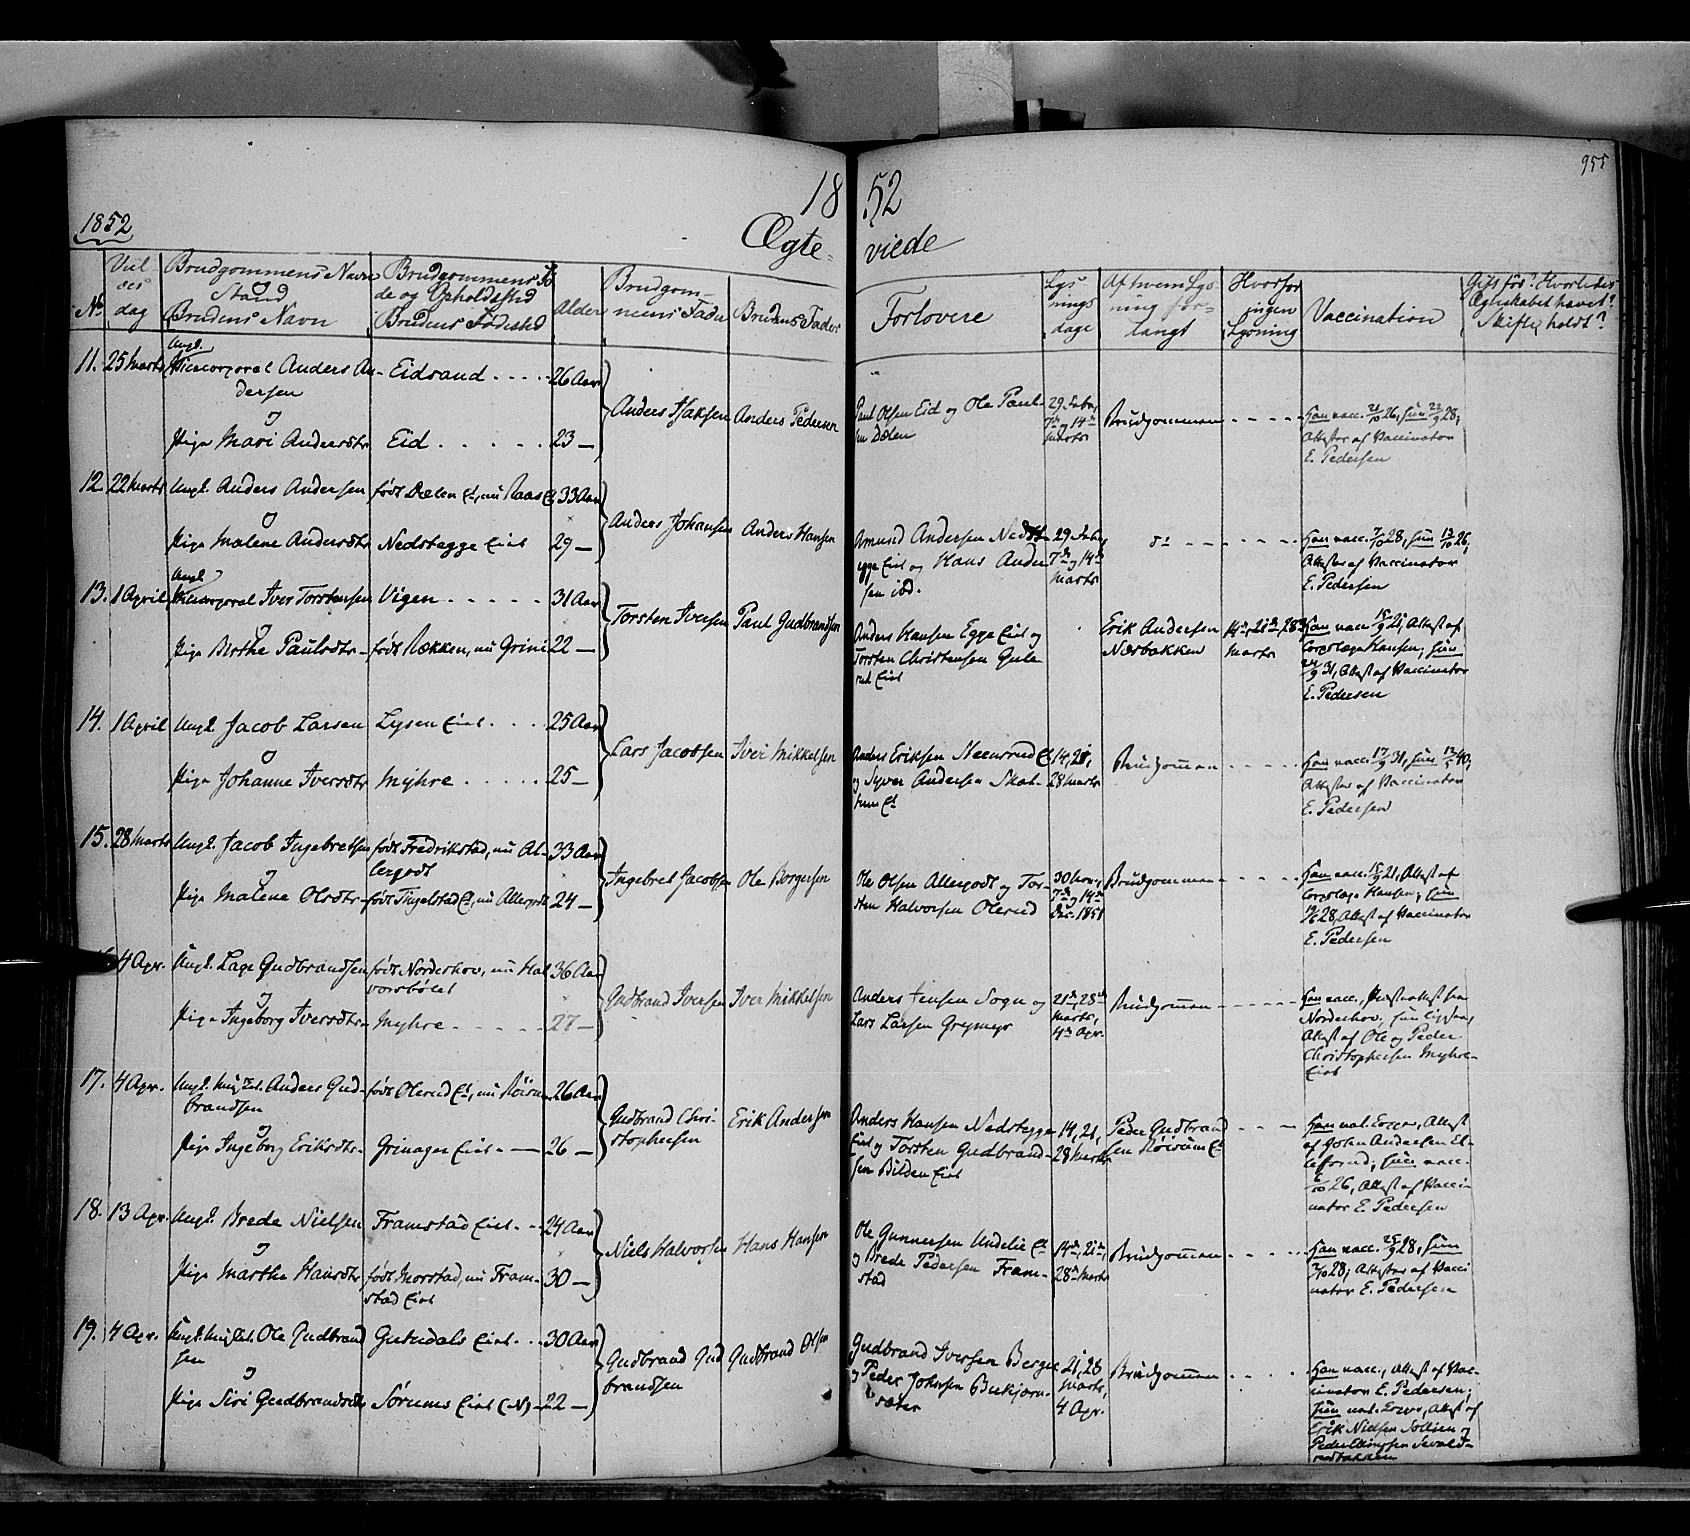 955
18 52
1852
Ægte- viede
No
Viel
ses
dag
Brudgommens Navn
Stand
og
Brudens Navn
Brudgommens Fö
de og Opholdssted
Brudens Födested
Alder
Brudgom-
mens Fader
Brudens Fader
Forlovere
Lys
nings
dage
Af hvem Lys
ning for-
langt
Hvorfor
ingen
Lysning
Vaccination
Gift för? Hvorledes
Ægteskabet hævet?
Skifte holdt?
11. 25 Marts
Ungk.
Vicecorporal Anders An-
dersen
og
Pige Mari Andersdtr
Eidsand
Eid
26 Aar
23 —
Anders Isaksen
Anders Pedersen
Paul Olsen Eid og Ole Paul-
sen Dælen
29 Febr.,
7de og 14de
Marts
Brudgommen
Han vacc. 26, hun 28,
Attester af Vaccinator
E. Pedersen
12. 22 Marts
Ungk. Anders Andersen
og
Pige Malene Andersdtr
født Dælen Et, nu Raas Et
Nedstegge Eiet
33 Aar
29 —
Anders Johansen
Anders Hansen
Amund Andersen Nedst-
egge Eiet og Hans Ander
sen ibd.
29 Febr.,
7de og 14de
Marts
do
Han vacc. 7/10 28, hun 12/10 26,
Attester af Vaccinator
E. Pedersen
13. 1 April
Ungk.
Vicecorporal Iver Torstensen
og
Pige Birthe Paulsdtr
Vigen
født Røkken, nu Grini
31 Aar
22 —
Torsten Iversen
Paul Gudbrandsen
Anders Hansen Egge Eiet og
Torsten Christensen Gule-
rud Eiet
Erik Andersen
Næsbakken
14de, 21de, 28de
Marts
Han vacc. 15/9 21, Attest af
Corpslæge Hansen; hun
31, Attest af Vaccinator
E. Pedersen
14. 1 April
Ungk. Jacob Larsen
og
Pige Johanne Iversdtr
Lysen Eiet
Myhre
25 Aar
25 —
Lars Jacobsen
Iver Mikkelsen
Anders Eriksen Steensrud Et
og Syver Andersen Skat-
tum Et
14, 21,
28 Marts
Brudgommen
Han vacc. 17/9 31, hun 40,
Attester af Vaccinator
E. Pedersen
15. 28 Marts
Ungk. Jacob Ingebretsen
og
Pige Malene Olsdtr
født Fredrikstad, nu Al-
lergodt
født Tingelstad Et, nu Allergodt
33 Aar
24 —
Ingebret Jacobsen
Ole Borgersen
Ole Olsen Allergodt og Tor-
sten Halvorsen Olerud
30 Nov.,
7de og 14de
Dec. 1851
Brudgommen
Han vacc. 21, Attest af
Corpslæge Hansen, hun
28, Attest af Vaccinator
E. Pedersen
4 Apr.
Ungk. Lage Gudbrandsen
og
Pige Ingeborg Iversdtr
født Norderhov, nu Hal
vorsbölet
Myhre
36 Aar
27 —
Gudbrand Iversen
Iver Mikkelsen
Anders Jensen Sogn og
Lars Larsen Greimeyr
21de, 28de
Marts,
4de Apr.
Brudgommen
Han vacc., Præsteattest fra
Norderhov, hun ligesaa,
Attest af Ole og Peder
Christophersen Myhre-
Eiet
17. 4 Apr.
Ungk. Anders Gud-
brandsen
og
Pige Ingeborg Eriksdtr
født Olerud Et, nu Röisum
Grinager Eiet
26 Aar
26 —
Gudbrand Chri-
stophersen
Erik Andersen
Anders Hansen Nedstegge
Eiet og Torsten Gudbrand-
sen Bilden Eiet
14, 21,
28 Marts
Peder Gudbrand
sen Röisum Et
Han nat. Kopper, Attest
af John Andersen El-
lefsrud; hun vacc.
26, Attest af Vacci-
nator E. Pedersen
18. 13 Apr.
Ungk. Brede Nielsen
og
Pige Marthe Hansdtr
Framstad Eiet
født Morstad, nu Fram-
stad Eiet
24 Aar
30 —
Niels Halvorsen
Hans Hansen
Ole Gunnersen Undelie Et
og Brede Pedersen Fram-
stad
14de, 21de,
28de Marts
Brudgommen
Han vacc. 25/9 28, hun
28, Attester af Vacci
nator E. Pedersen
19. 4 Apr.
Ungk. Ole Gudbrand
sen
og
Pige Siri Gudbrandsdtr
Gutudals Eiet
Sörums Eiet (N)
30 Aar
22 —
Gudbrand Gud
brandsen
Gudbrand Olsen
Gudbrand Iversen Berger
og Peder Johnsen Butjern-
sæter
21, 28
Marts,
4 Apr.
Brudgommen
Han vacc., Attest af Vac-
cinator E. Pedersen;
hun nat. Kopper, Attest af
Erik Nielsen Sollien og
Peder Ellingsen Sevald-
rudbakken